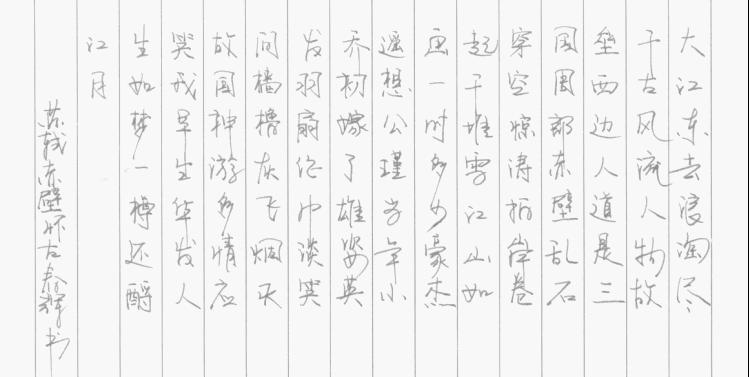 大江东去浪淘尽
千古风流人物故
垒西边人道是三
国周郎赤壁乱石
穿空惊涛拍岸卷
起千堆雪江山如
画一时多少豪杰
遥想公瑾当年小
乔初嫁了雄姿英
发羽扇纶巾淡笑
间樯橹灰飞烟灭
故国神游多情应
笑我早生华发人
生如梦一樽还酹
江月
苏轼赤壁怀古春辉书